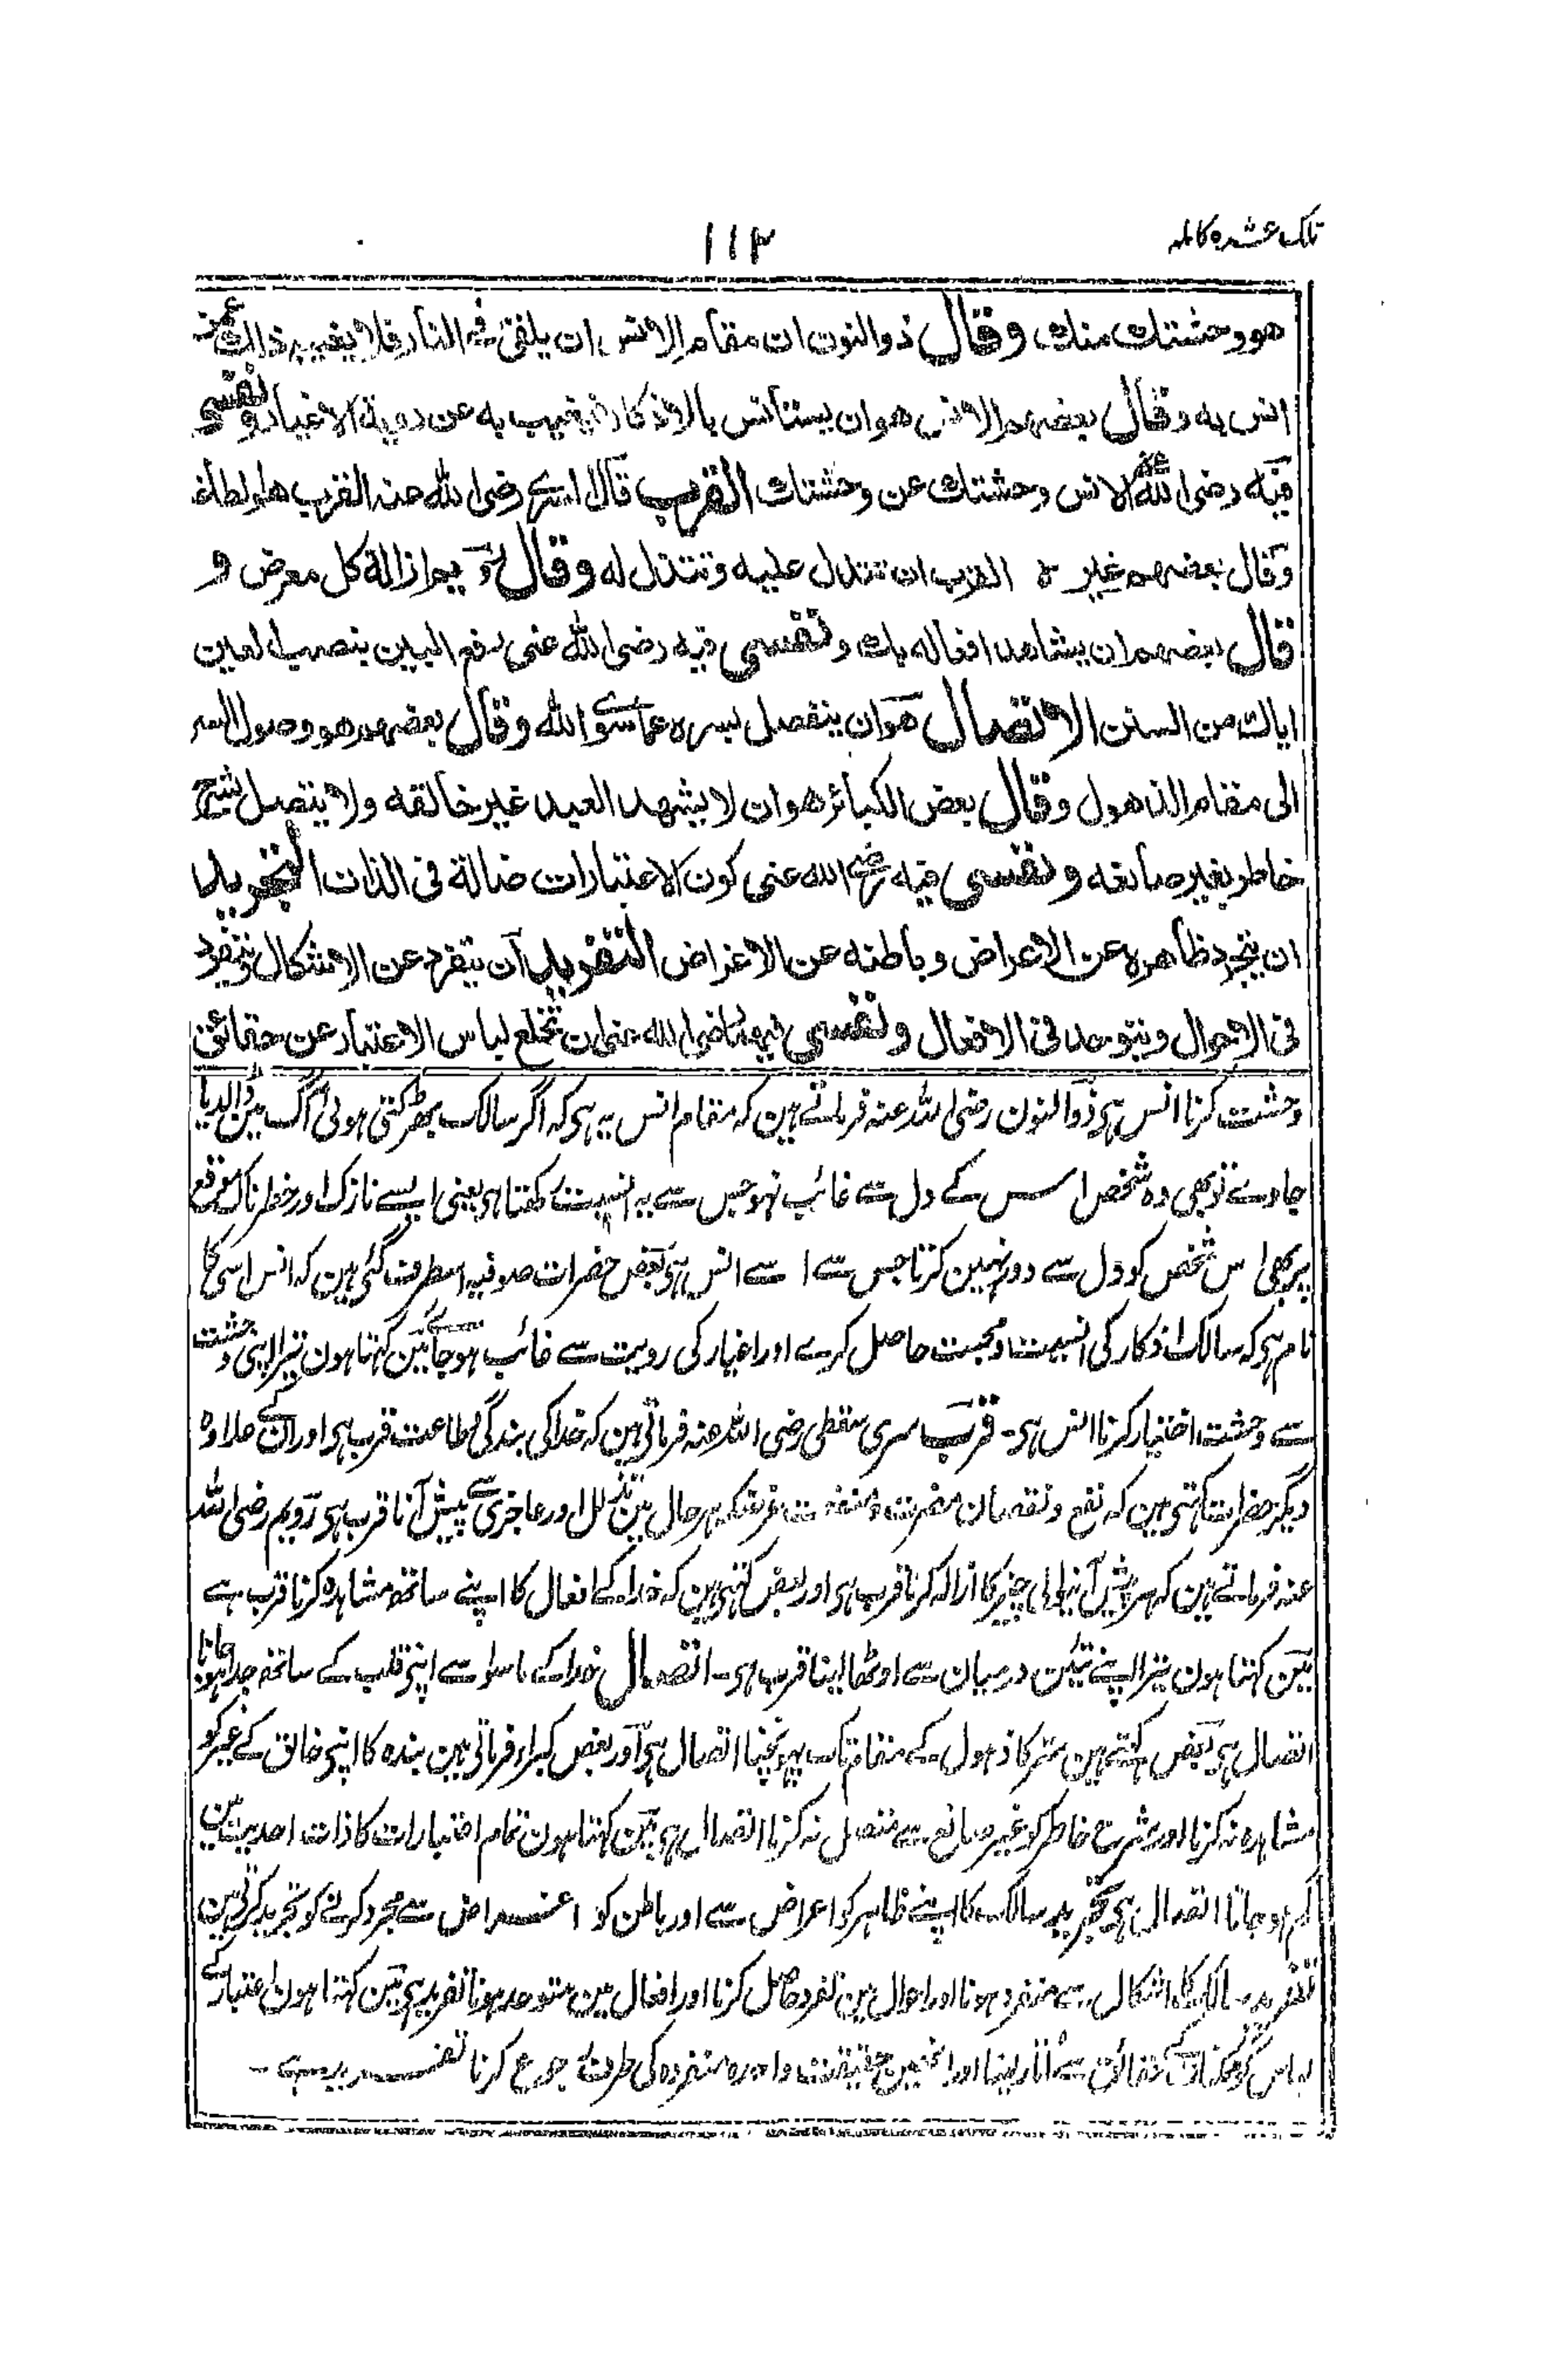 تلک عشرہ کاملہ
۱۱۲
هو وحشتك منك وقال ذوالنون ان مقام الانس ان يلقى فى النار فلا يغيب ذالك عمن
انس به وقال بعضهم الانس هو ان يستأنس بالاذكار فيغيب به عن روية الاغيار ونفسى
فيه رضى الله عنه الانس وحشتك عن وحشتك القرب قال السرى رضى الله عنه القرب هو الطاعة
وقال بعضهم غيره القرب ان تتدلل عليه وتتذلل له وقال رويم ازالة كل معرض و
قال بعضهم ان يشاهد افعاله بك ونفسى فيه رضى الله عنى رفع البين
اياك من البين الاتصال هو ان ينفصل بسره عما سوى الله وقال بعضهم هو وصول السر
الى مقام الذهول وقال بعض الكبائر هو ان لا يشهد العبد غير خالقه ولا يتصل
خاطر بغير صانعه ونفسى فيه رضى الله عنى كون الاعتبارات ضالة فى الذات التجريد
ان يتجرد ظاهره عن الاعراض وباطنه عن الاغراض التفريد ان يتفرد عن الاشكال ويتفرد
فى الاحوال ويتوحد فى الافعال ونفسى فيهما رضى الله عنى ان تخلع لباس الاعتبار عن حقائق
وحشت کرنا انس ہی ذوالنون رضی اللہ عنہ فرماتے ہین کہ مقام انس یہ ہی کہ اگر سالک بھڑکتی ہوئی آگ مین ڈالدیا
جاوے تو بھی وہ شخص اس کے دل سے غائب نہو جس سے یہ انسیت رکھتا ہی یعنی ایسے نازک اور خطرناک موقع
پر بھی اس شخص کو دل سے دور نہین کرتا جس سے اسے انس ہی بعض حضرات صوفیہ اسطرف گئی ہین کہ انس اسی کا
نام ہی کہ سالک اذکار کی انسیت و محبت حاصل کرے اور اغیار کی رویت سے غائب ہو جائے مین کہتا ہون تیرا اپنی وحشت
سے وحشت اختیار کرنا انس ہی۔ قرب سری سقطی رضی اللہ عنہ فرماتی ہین کہ خدا کی بندگی و طاعت قرب ہی اور انکے علاوہ
دیگر حضرات کہتی ہین کہ نفع و نقصان مضرت و منفعت غرضکہ ہر حال مین تذلل اور عاجزی سے پیش آنا قرب ہی رویم رضی اللہ
عنہ فرماتے ہین کہ ہر پیش آنیوالی چیز کا ازالہ کرنا قرب ہی اور بعض کہتی ہین کہ خدا کے افعال کا اپنے ساتھ مشاہدہ کرنا قرب ہے
مین کہتا ہون تیرا اپنے تئین درمیان سے اوٹھا لینا قرب ہی۔ اتصال خدا کے ماسوا سے اپنی قلب کے ساتھ جدا ہو جانا
اتصال ہی بعض کہتے ہین سر کا ذہول کے مقام تک پہونچنا اتصال ہی اور بعض کبراء فرماتی ہین بندہ کا اپنی خالق کے غیر کو
مشاہدہ نہ کرنا اور خاطر کو غیر صانع سے متصل نہ کرنا اتصال ہی مین کہتا ہون تمام اعتبارات کا ذات احدیت مین
گم ہو جانا اتصال ہی تجرید سالک کا اپنے ظاہر کو اعراض سے اور باطن کو اغراض سے مجرد کرنے کو تجرید کہتی ہین
تفرید۔ سالک کا اشکال سے متفرد ہونا اور احوال مین تفرد حاصل کرنا اور افعال مین متوحد ہونا تفرید ہی مین کہتا ہون اعتبار کے
لباس کو حقائق سے اتار لینا اور انھین حقیقت واحدہ متفردہ کی طرف رجوع کرنا تفرید ہے۔